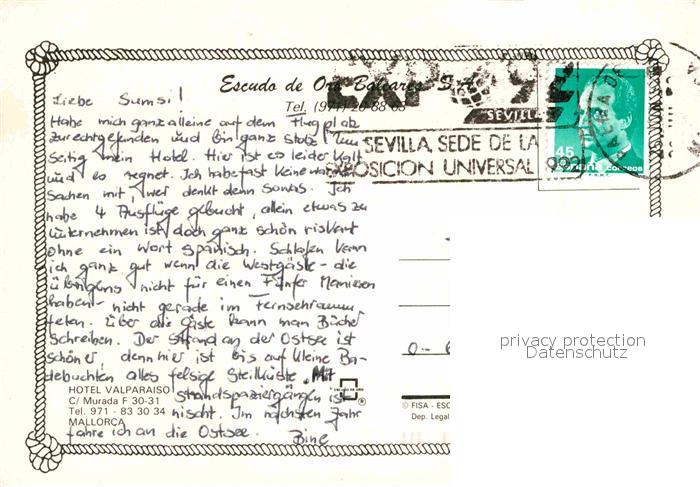 Escudo de Oro Baleares S.A.
Tel. (971) 20 88 65
EXPO 92
SEVILLA
SEVILLA, SEDE DE LA
EXPOSICION UNIVERSAL 1992
PALMA DE
45
españa correos
Liebe Sumsi!
Habe mich ganz alleine auf dem Flugplatz
zurechtgefunden und bin ganz stolz. Um
seitig mein Hotel. Hier ist es leider kalt
und es regnet. Ich habe fast keine warmen
Sachen mit, wer denkt denn sowas. Ich
habe 4 Ausflüge gebucht, allein etwas zu
unternehmen ist doch ganz schön riskant
ohne ein Wort spanisch. Schlafen kann
ich ganz gut wenn die Westgäste - die
übrigens nicht für einen Fünfer Manieren
haben - nicht gerade im Fernsehraum
feten. Über die Gäste kann man Bücher
schreiben. Der Strand an der Ostsee ist
schöner, denn hier ist bis auf kleine Ba-
debuchten alles felsige Steilküste. Mit
Strandspaziergängen ist
nischt. Im nächsten Jahr
fahre ich an die Ostsee.
Bine
HOTEL VALPARAISO
C/ Murada F 30-31
Tel. 971 - 83 30 34
MALLORCA
O-
© FISA - ESC
Dep. Legal
privacy protection
Datenschutz